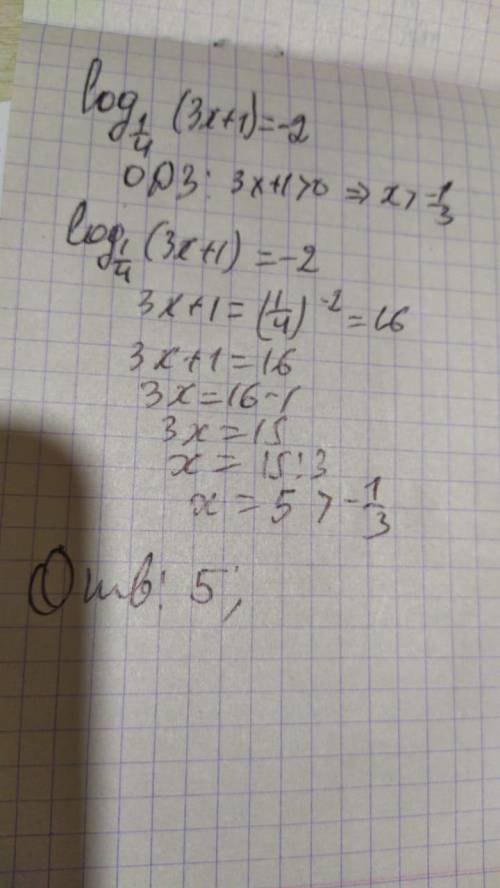 log_{1/4} (3x+1)=-2
ОДЗ: 3x+1>0 ⇒ x>-1/3
log_{1/4} (3x+1) = -2
3x+1 = (1/4)^{-2} = 16
3x+1=16
3x=16-1
3x=15
x = 15:3
x = 5 > -1/3
Отв: 5;